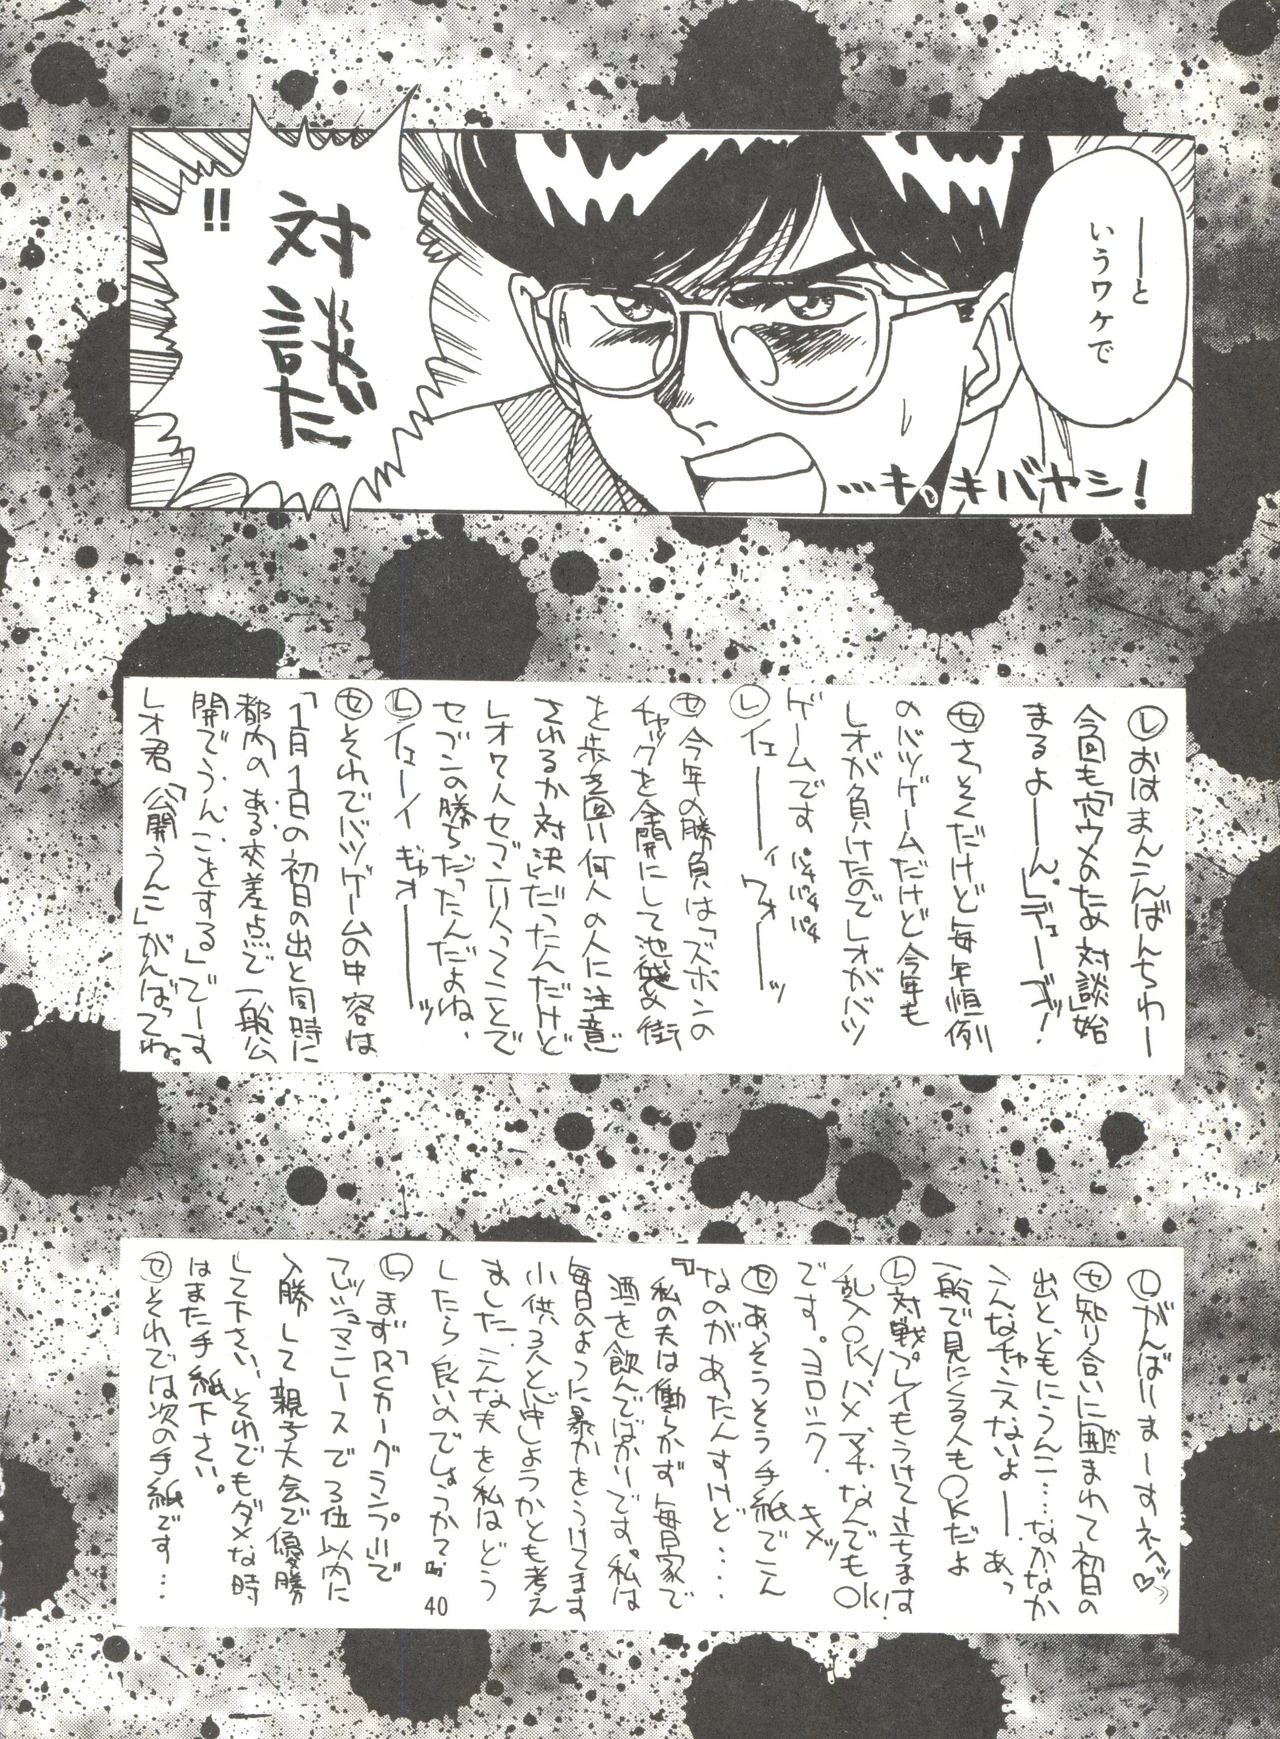 ――と
いうワケで
対談だ
!!
…キ。キバヤシ!
Ⓛおはまんこんばんちわー
今回も「穴ウメのため対談」始
まるよ――ん」デェーーブッ!
㋝さっそくだけど毎年恒例
のバツゲームだけど今年も
レオが負けたのでレオがバツ
ゲームです パチパチパチ
Ⓛイェ――ィ ワォ――ッ
㋝今年の勝負は「ズボンの
チャックを全開にして池袋の街
を歩き回り何人の人に注意
されるか対決」だったんだけど
レオ7人セブン11人ってことで
セブンの勝ちだったんだよね、
Ⓛイェーイ ギャオ――ッ
㋝それでバツゲームの中容は
「1月1日の初日の出と同時に
都内のある交差点で一般公
開でうんこをする」でーす
レオ君「公開うんこ」がんばってね。
Ⓛがんばりまーすネヘッ♡
㋝知り合いに囲まれて初日の
出とともにうんこ……なかなか
こんなチャンスないよ――あっ
一般で見にくる人もOKだよ
Ⓛ対戦プレイもうけて立ちます
乱入OK!バメ、マチ、なんでもOK!
です。ヨロシク、 キメッ
㋝あ、そうそう手紙でこん
なのがあったんすけど・・・・
『私の夫は働らかず毎日家で
酒を飲んでばかりです。私は
毎日のように暴力をうけてます
小供3人と死しようかとも考え
ました、こんな夫を私はどう
したら良いのでしょうか?』
Ⓛまず「RCカーグランプリ」で
てジュマンレースで3位以内に
入勝して親子大会で優勝
して下さい、それでもダメな時
はまた手紙下さい。
㋝それでは次の手紙です…
40